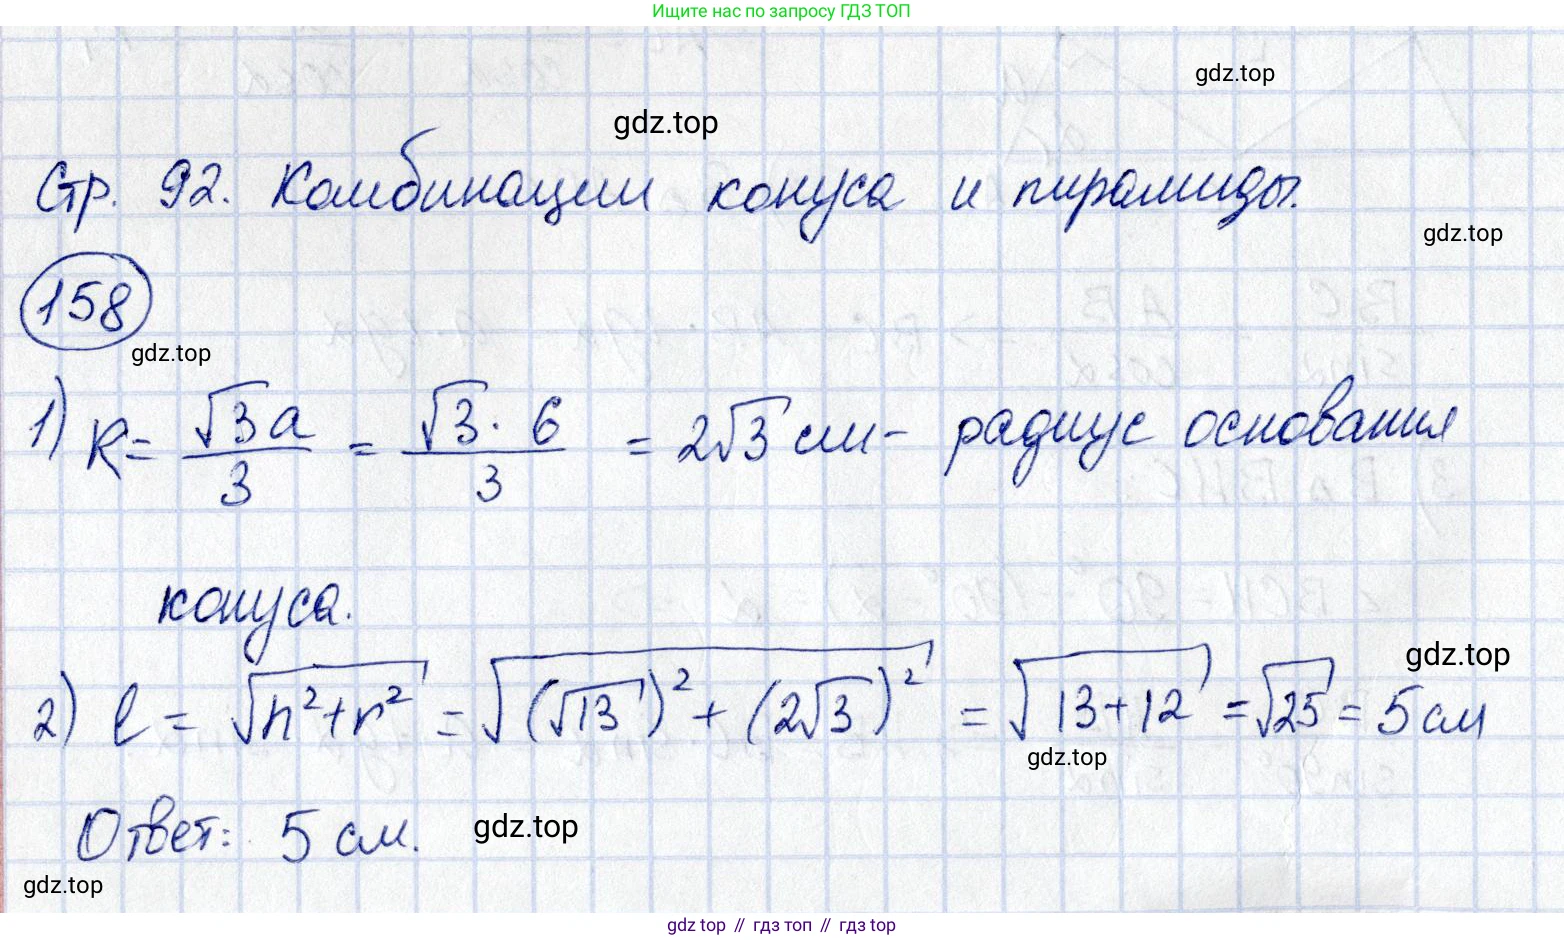 Ищите нас по запросу ГДЗ ТОП
gdz.top
gdz.top
Стр. 92. Комбинации конуса и пирамиды.
gdz.top
158
gdz.top
1) R = √3a/3 = √3·6/3 = 2√3 см - радиус основания
конуса.
gdz.top
2) l = √(h²+r²) = √((√13)²+(2√3)²) = √(13+12) = √25 = 5 см
gdz.top
Ответ: 5 см.
gdz.top
gdz.top
gdz top // гдз топ // гдз top